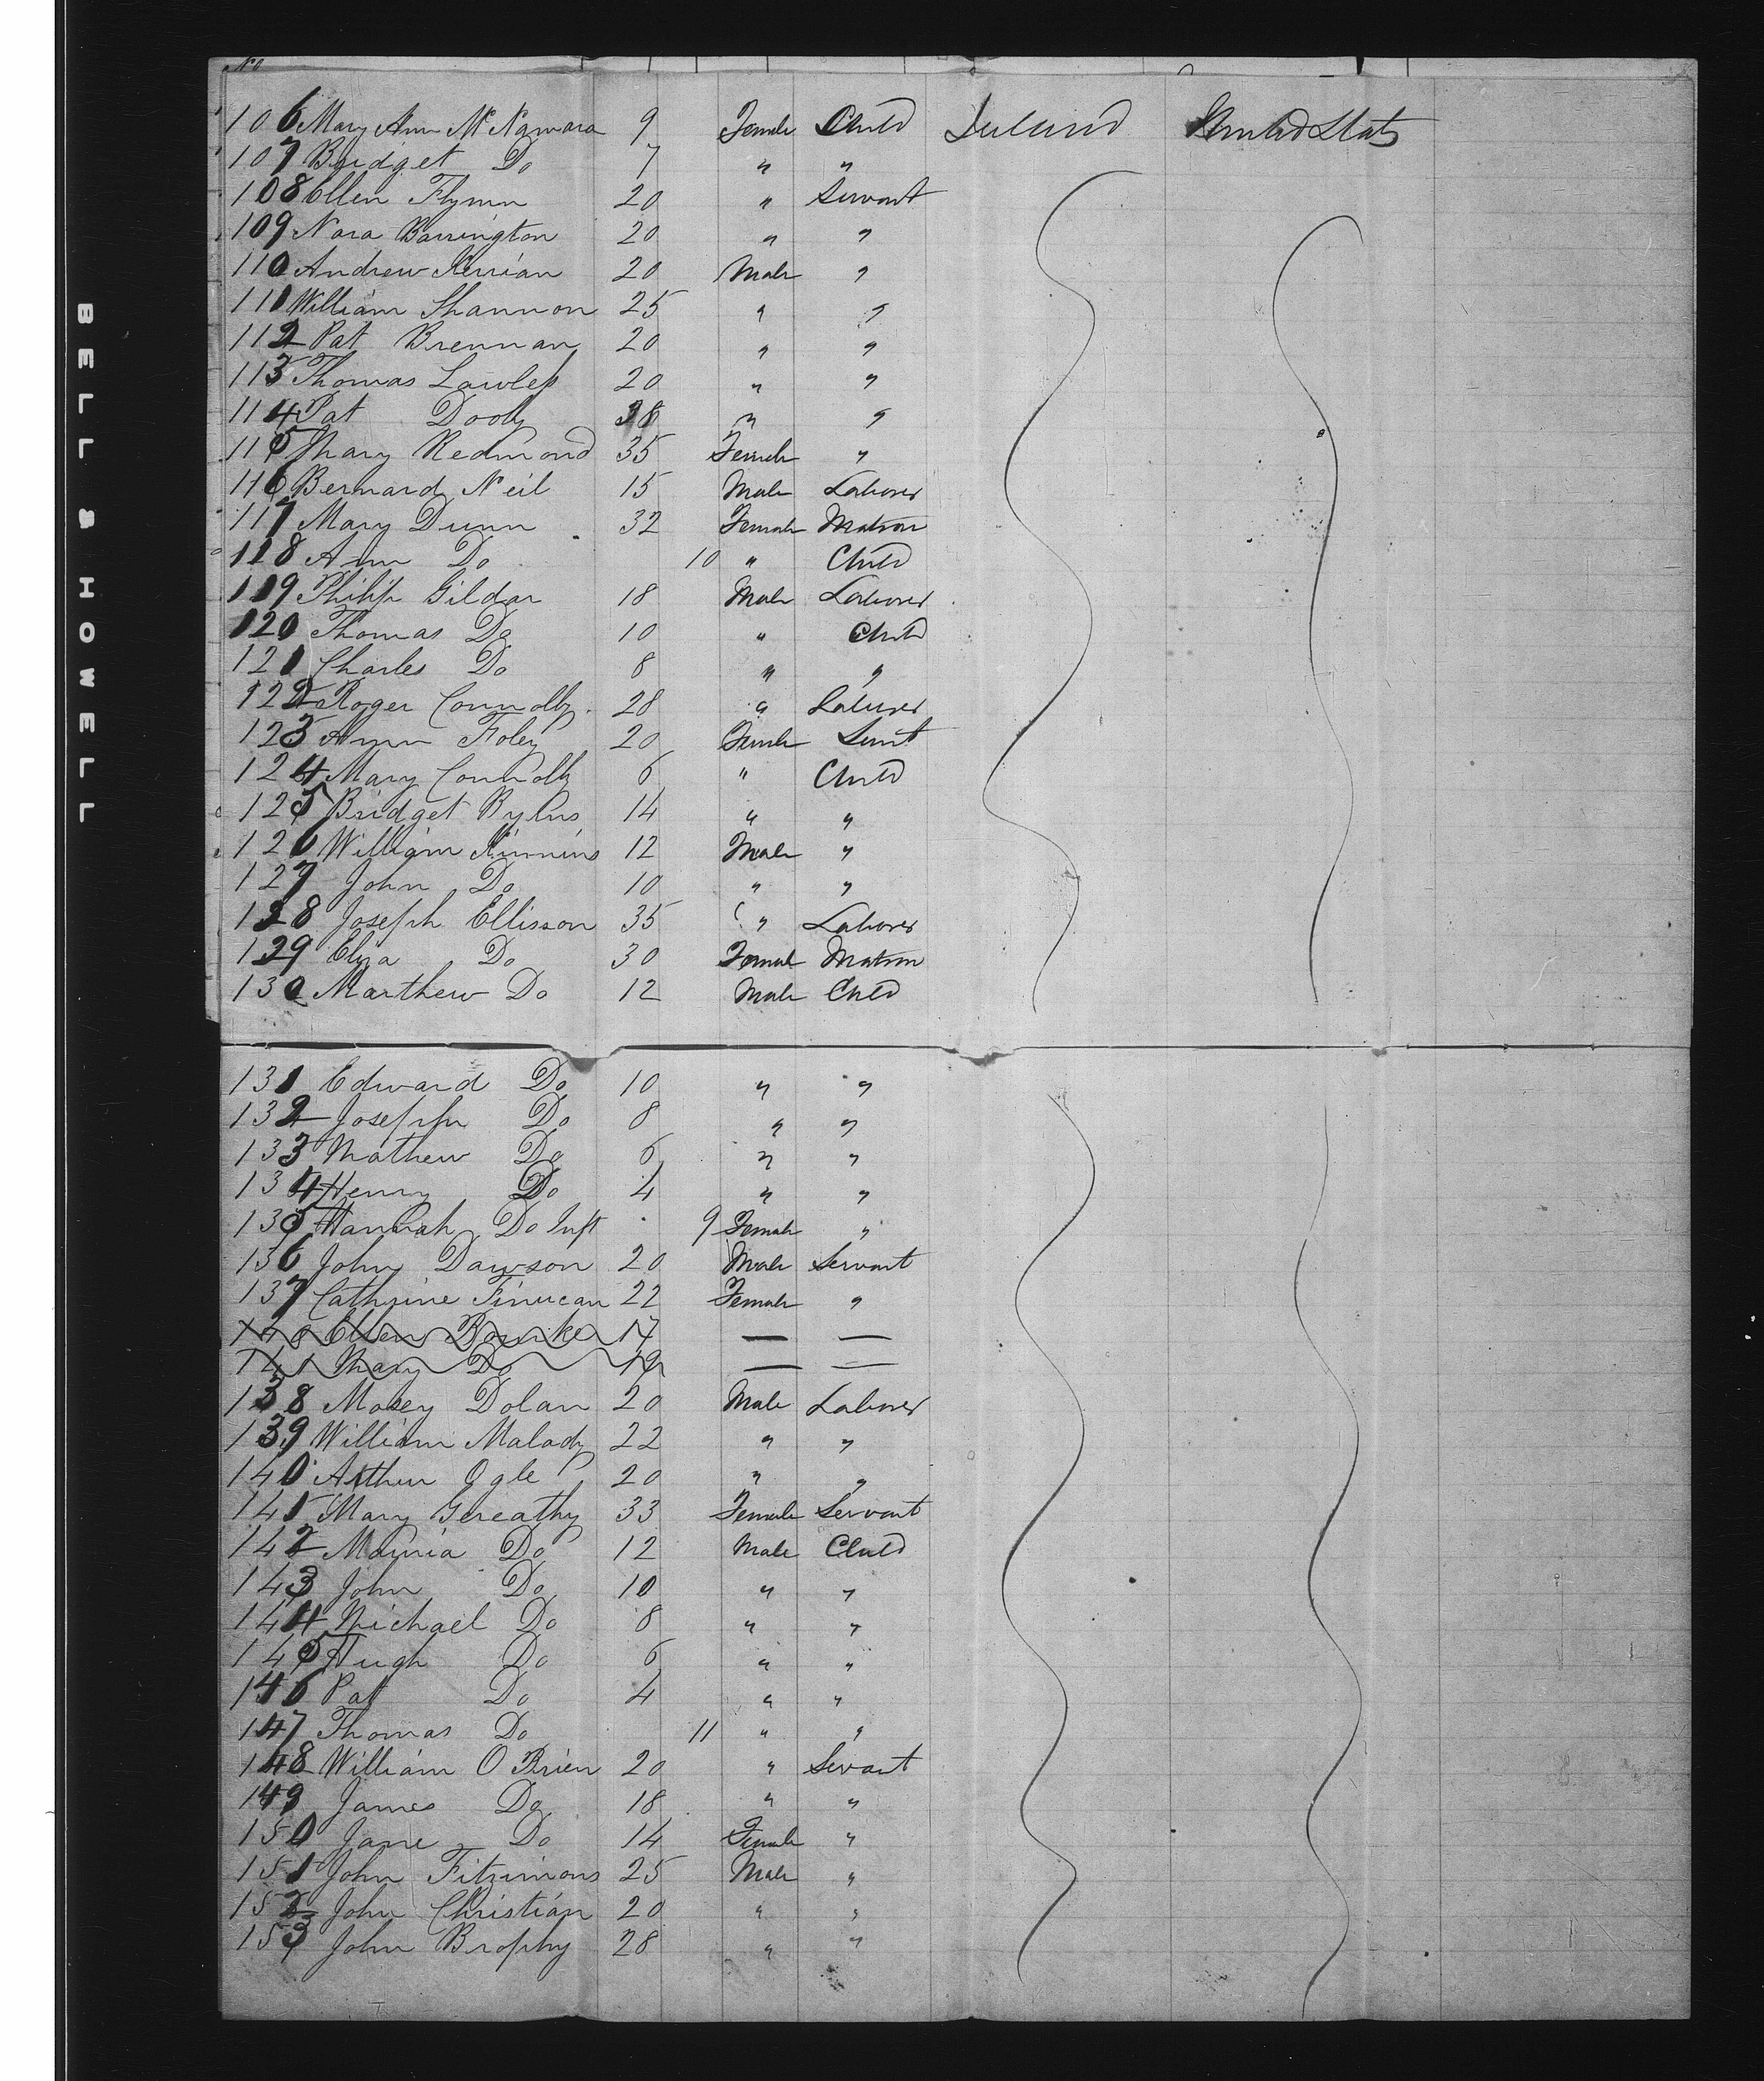 No
106 Mary Ann McNamara 9 Female Child Ireland United States
107 Bridget Do 7 " "
108 Ellen Flynn 20 " Servant
109 Nora Barrington 20 " "
110 Andrew Kerrian 20 Male "
111 William Shannon 25 " "
112 Pat Brennan 20 " "
113 Thomas Lawless 20 " "
114 Pat Dooly 38 " "
115 Mary Redmond 35 Female "
116 Bernard Neil 15 Male Laborer
117 Mary Dunn 32 Female Matron
118 Ann Do 10 " Child
119 Philip Gildar 18 Male Laborer
120 Thomas Do 10 " Child
121 Charles Do 8 " "
122 Roger Connolly 28 " Laborer
123 Ann Foley 20 Female Servt
124 Mary Connolly 6 " Child
125 Bridget 14 " "
126 William Kinnins 12 Male "
127 John Do 10 " "
128 Joseph Ellisson 35 " Laborer
129 Eliza Do 30 Female Matron
130 Marthew Do 12 Male Child
131 Edward Do 10 " "
132 Joseph Do 8 " "
133 Mathew Do 6 " "
134 Henry Do 4 " "
135 Hannah Do Inft 9 Female "
136 John Dawson 20 Male Servant
137 Cathrine Finucan 22 Female "
140 Ellen Bourke 17 — —
141 Mary Do 19 — —
138 Mosey Dolan 20 Male Laborer
139 William Malady 22 " "
140 Arthur Ogle 20 " "
141 Mary Gereathy 33 Female Servant
142 Do 12 Male Child
143 John Do 10 " "
144 Michael Do 8 " "
145 Hugh Do 6 " "
146 Pat Do 4 " "
147 Thomas Do 11 " "
148 William O Brien 20 " Servant
149 James Do 18 " "
150 Jane Do 14 Female "
151 John Fitzimons 25 Male "
152 John Christian 20 " "
153 John Brophy 28 " "
BELL & HOWELL